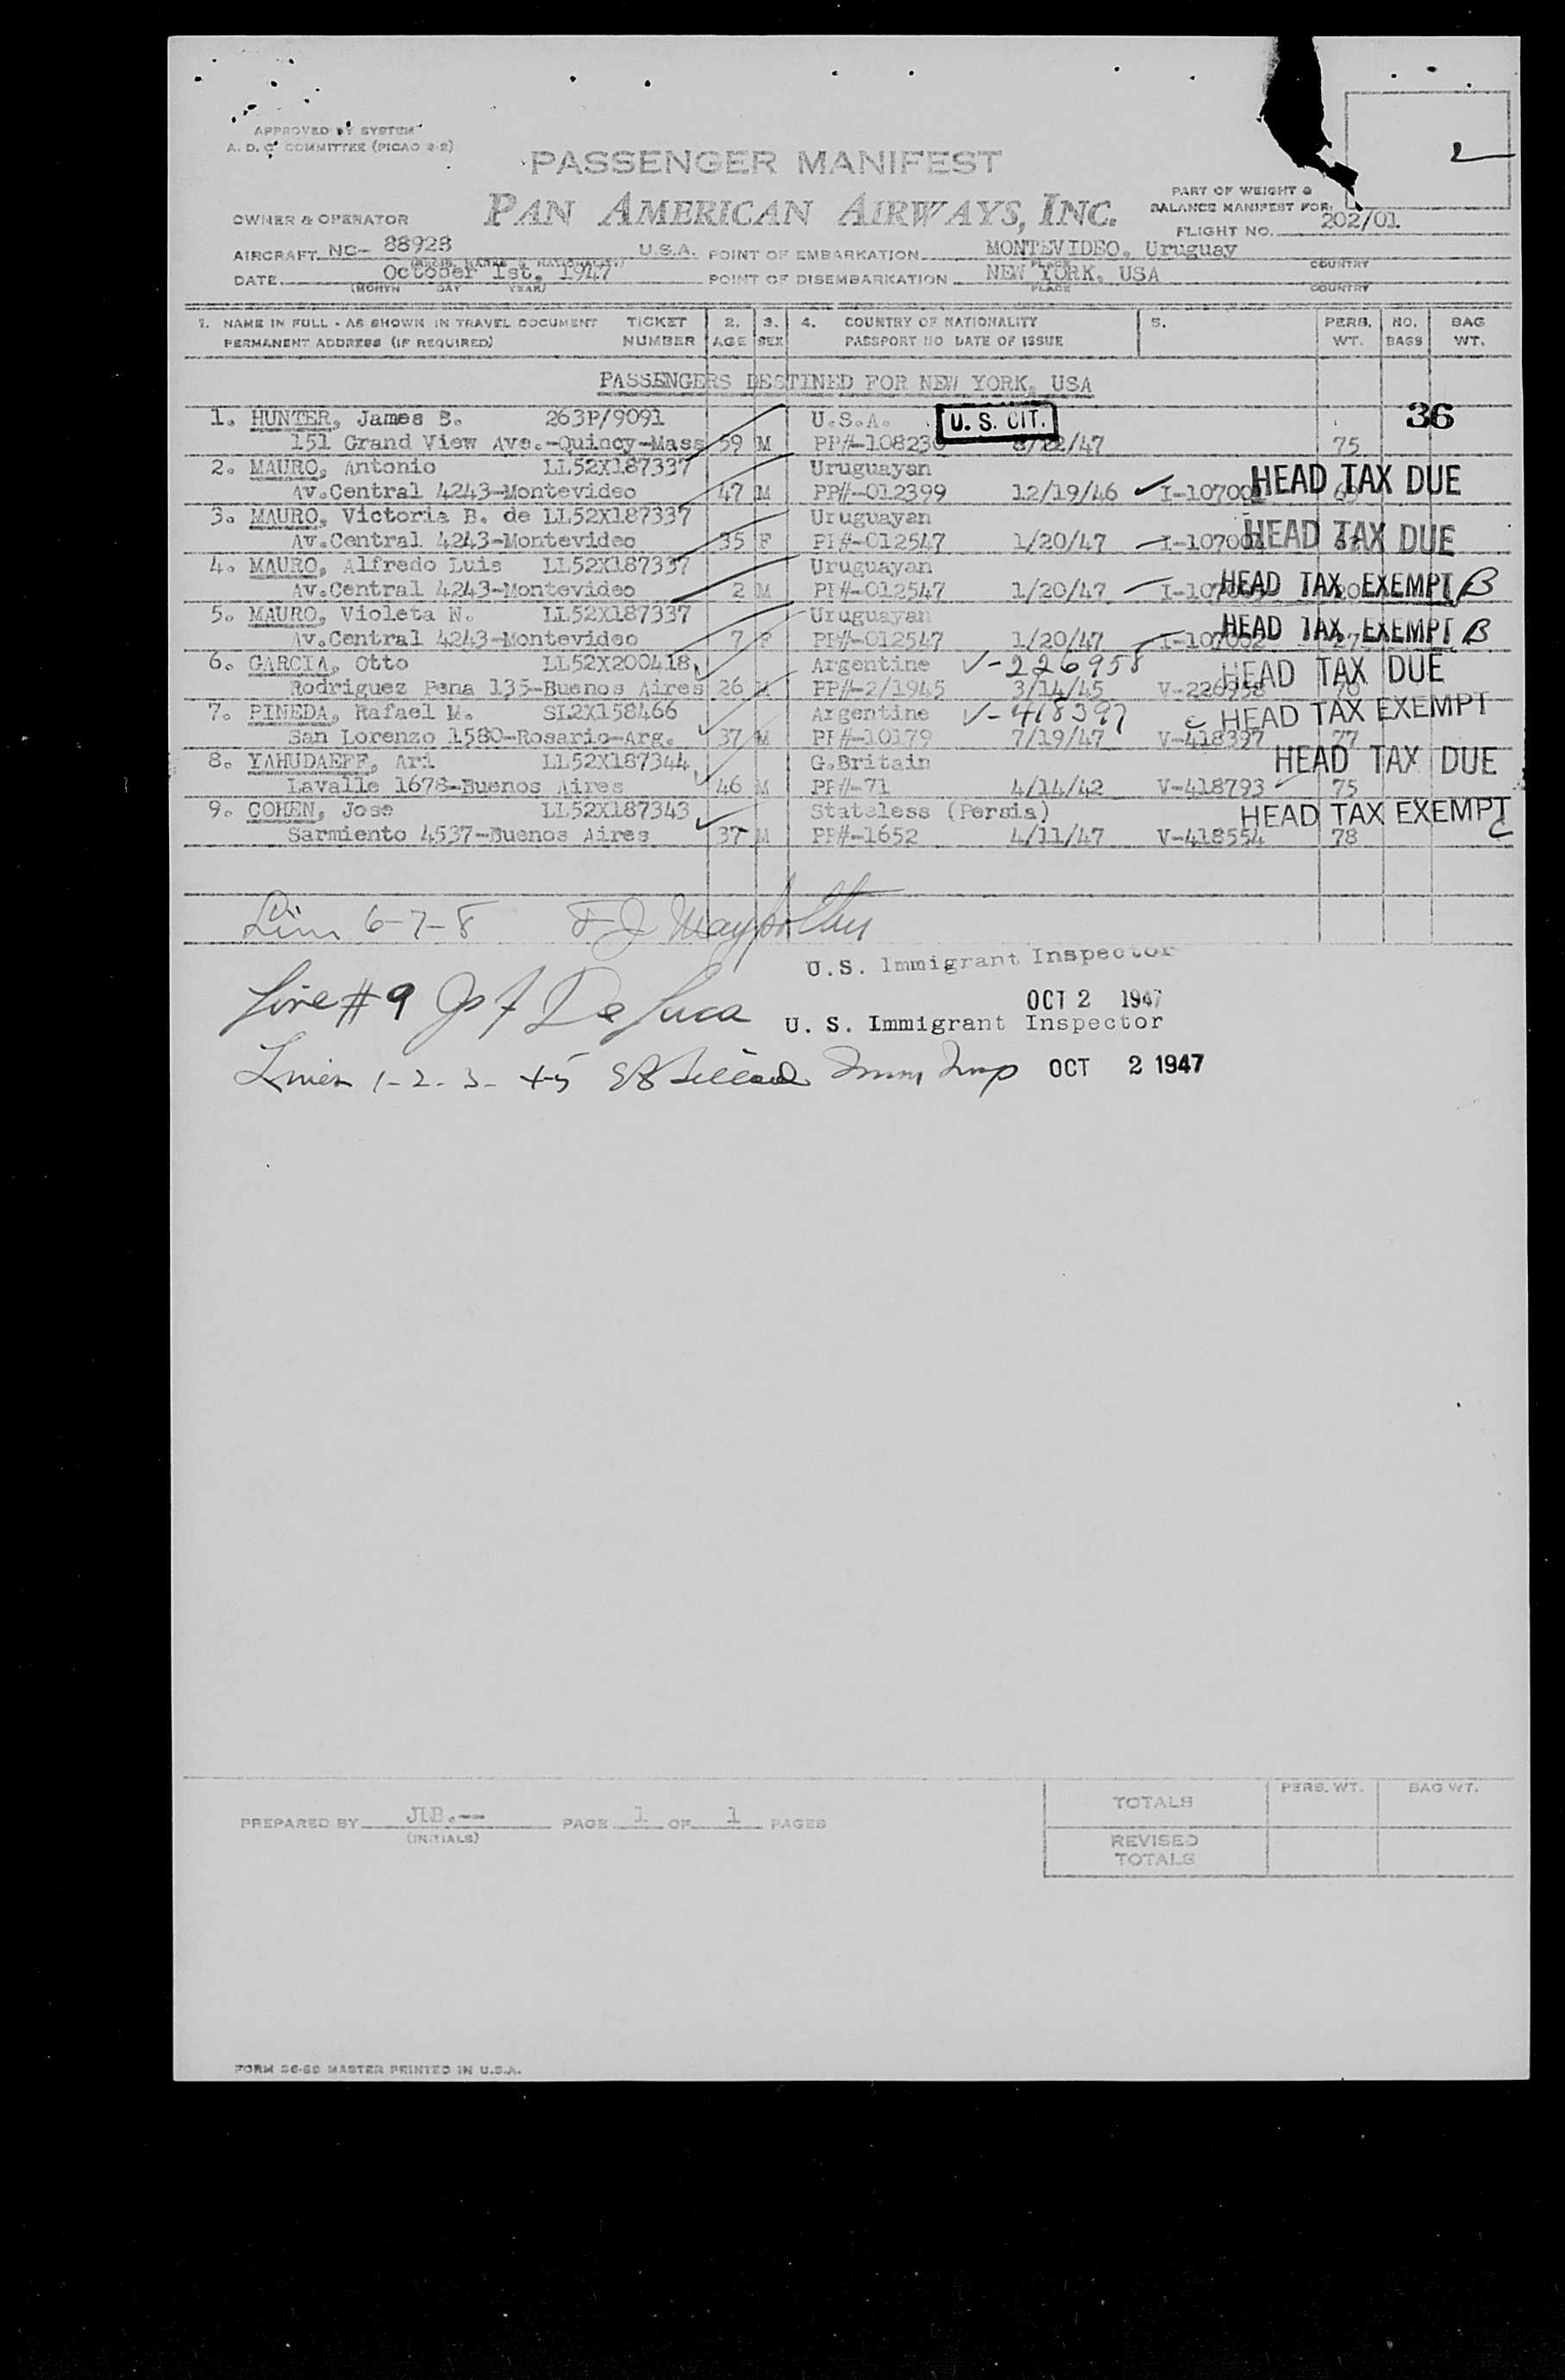 APPROVED BY SYSTEM
A. D. C. COMMITTEE (PICAO 2-2)
2
PASSENGER MANIFEST
PAN AMERICAN AIRWAYS, INC.
PART OF WEIGHT &
BALANCE MANIFEST FOR:
FLIGHT NO. 202/01
OWNER & OPERATOR
AIRCRAFT NC- 88923 U.S.A. POINT OF EMBARKATION MONTEVIDEO, Uruguay
PLACE COUNTRY
DATE October 1st, 1947 POINT OF DISEMBARKATION NEW YORK, USA
(MONTH DAY YEAR) PLACE COUNTRY
1. NAME IN FULL - AS SHOWN IN TRAVEL DOCUMENT TICKET 2. 3. 4. COUNTRY OF NATIONALITY 5. PERS. NO. BAG
PERMANENT ADDRESS (IF REQUIRED) NUMBER AGE SEX PASSPORT NO DATE OF ISSUE WT. BAGS WT.
PASSENGERS DESTINED FOR NEW YORK, USA
1. HUNTER, James S. 263P/9091 U.S.A. U. S. CIT. 36
151 Grand View Ave.-Quincy-Mass 59 M PP#-108230 8/22/47 75
2. MAURO, Antonio LL52X187337 Uruguayan HEAD TAX DUE
Av.Central 4243-Montevideo 47 M PP#-012399 12/19/46
3. MAURO, Victoria B. de LL52X187337 Uruguayan HEAD TAX DUE
Av.Central 4243-Montevideo 35 F PP#-012547 1/20/47
4. MAURO, Alfredo Luis LL52X187337 Uruguayan HEAD TAX EXEMPT B
Av.Central 4243-Montevideo 2 M PP#-012547 1/20/47
5. MAURO, Violeta N. LL52X187337 Uruguayan HEAD TAX EXEMPT B
Av.Central 4243-Montevideo 7 F PP#-012547 1/20/47 I-107002 27
6. GARCIA, Otto LL52X200418 Argentine V-226958 HEAD TAX DUE
Rodriguez Pena 135-Buenos Aires 26 M PP#-2/1945 3/14/45 V-226958 70
7. PINEDA, Rafael M. SL2X158466 Argentine V-418397 c HEAD TAX EXEMPT
San Lorenzo 1580-Rosario-Arg. 37 M PP#-10179 7/19/47 V-418397 77
8. YAHUDAEFF, Ari LL52X187344 G.Britain HEAD TAX DUE
Lavalle 1678-Buenos Aires 46 M PP#-71 4/14/42 V-418793 75
9. COHEN, Jose LL52X187343 Stateless (Persia) HEAD TAX EXEMPT C
Sarmiento 4537-Buenos Aires 37 M PP#-1652 4/11/47 V-418554 78
6-7-8 F J
U.S. Immigrant Inspector
Line # 9 Jos F De Luca OCT 2 1947
U. S. Immigrant Inspector
Lines 1-2-3-4-5 Imm Insp OCT 2 1947
TOTALS PERS. WT. BAG WT.
PREPARED BY JLB.-- PAGE 1 OF 1 PAGES
(INITIALS)
REVISED
TOTALS
FORM 36-60 MASTER PRINTED IN U.S.A.